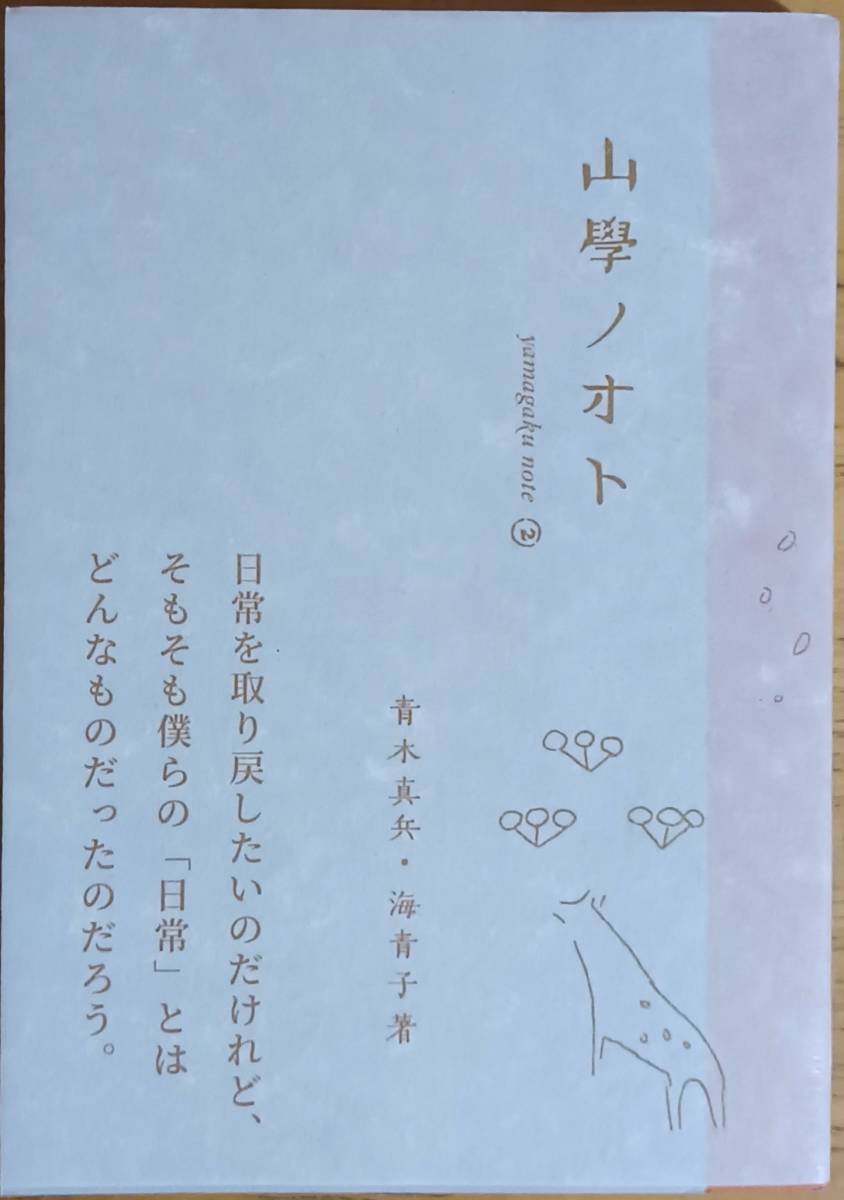 山學ノオト
yamagaku note ②
青木真兵・海青子 著
日常を取り戻したいのだけれど、
そもそも僕らの「日常」とは
どんなものだったのだろう。